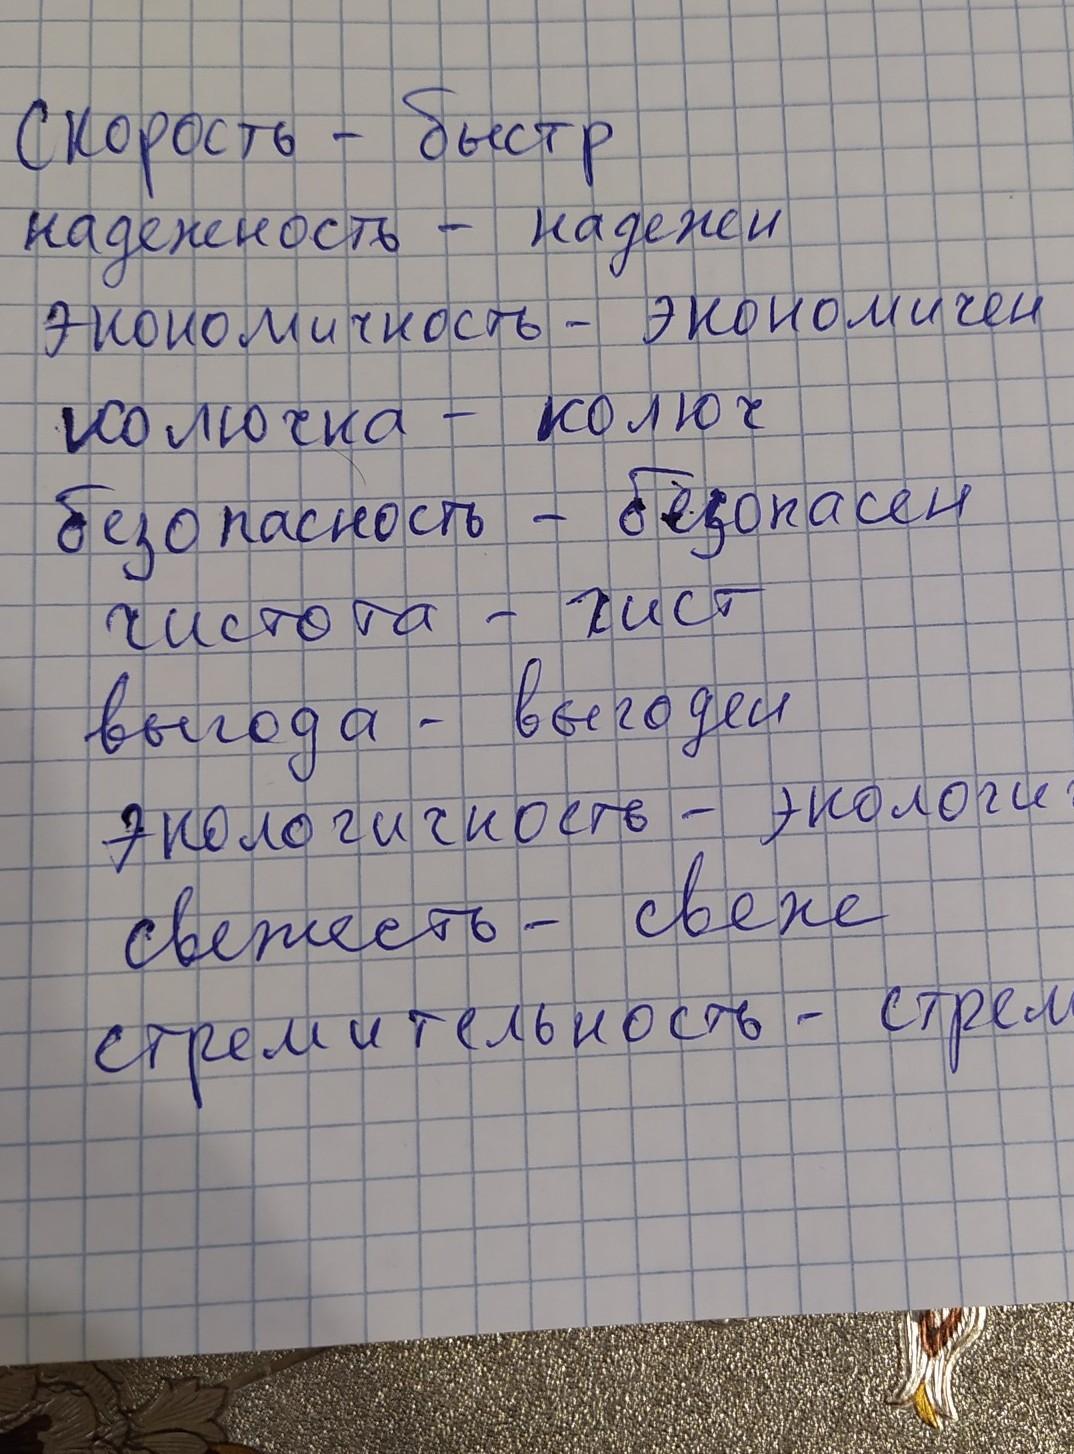 Скорость - быстр
надежность - надежен
экономичность - экономичен
колючка - колюч
безопасность - безопасен
чистота - чист
выгода - выгоден
экологичность - экологи
свежесть - свеже
стремительность - стрем